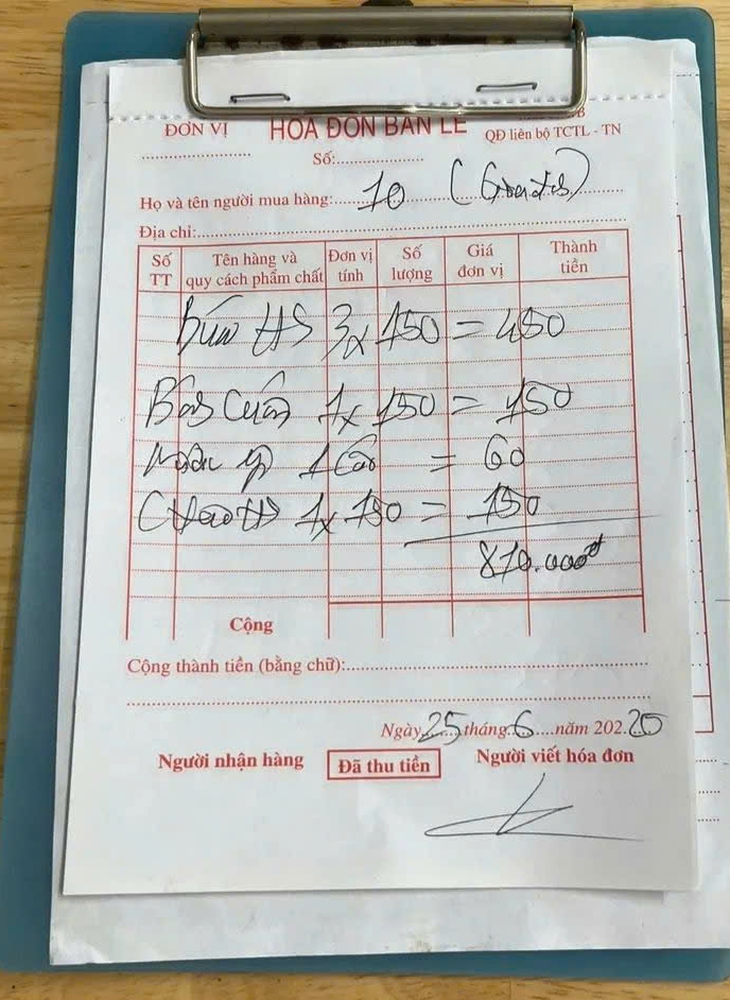 ĐƠN VỊ
HÓA ĐƠN BÁN LẺ
QĐ liên bộ TCTL - TN
Số:
Họ và tên người mua hàng: 10
Địa chỉ:
Số TT Tên hàng và quy cách phẩm chất Đơn vị tính Số lượng Giá đơn vị Thành tiền
Bún HS 3x150 = 450
Bánh Cuốn 1x150 = 150
1 = 60
Cháo HS 1x150 = 150
810.000đ
Cộng
Cộng thành tiền (bằng chữ):
Ngày 25 tháng 6 năm 202
Người nhận hàng Đã thu tiền Người viết hóa đơn